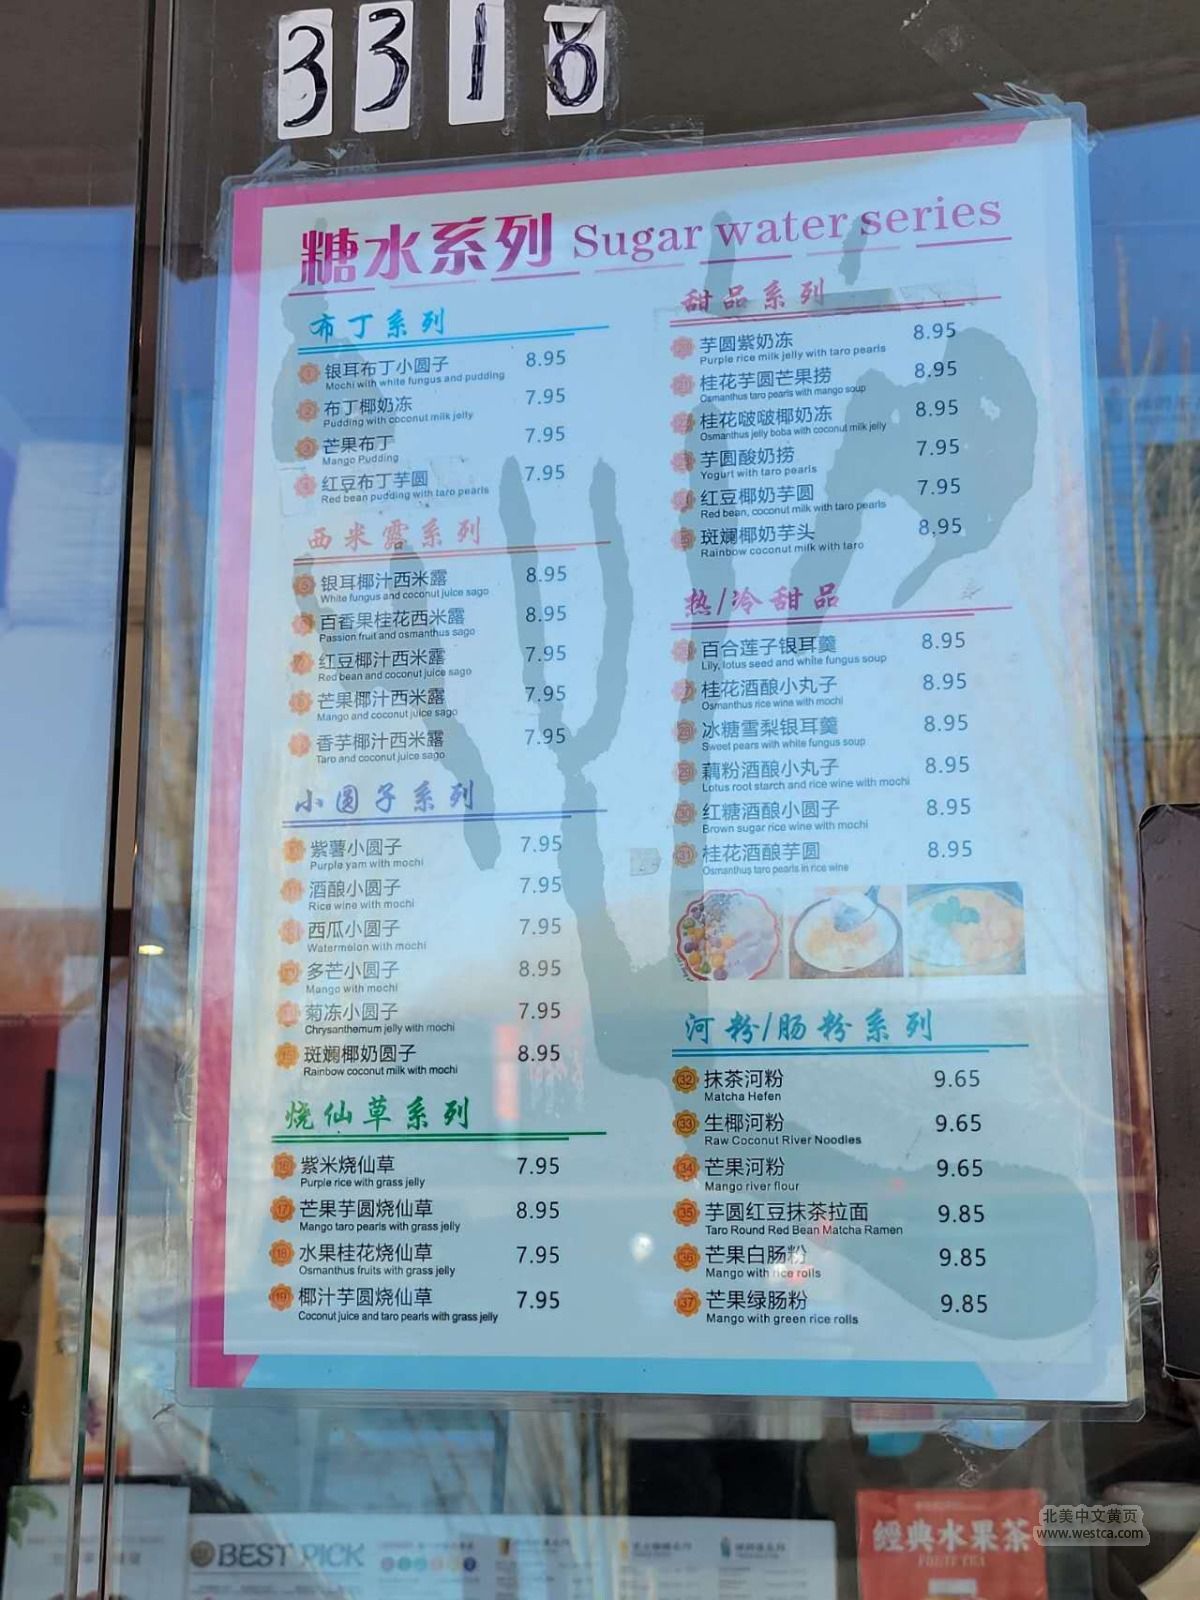 3318
糖水系列 Sugar water series
布丁系列
1 银耳布丁小圆子 8.95
Mochi with white fungus and pudding
2 布丁椰奶冻 7.95
Pudding with coconut milk jelly
3 芒果布丁 7.95
Mango Pudding
4 红豆布丁芋圆 7.95
Red bean pudding with taro pearls
西米露系列
5 银耳椰汁西米露 8.95
White fungus and coconut juice sago
6 百香果桂花西米露 8.95
Passion fruit and osmanthus sago
7 红豆椰汁西米露 7.95
Red bean and coconut juice sago
8 芒果椰汁西米露 7.95
Mango and coconut juice sago
香芋椰汁西米露 7.95
Taro and coconut juice sago
小圆子系列
紫薯小圆子 7.95
Purple yam with mochi
11 酒酿小圆子 7.95
Rice wine with mochi
西瓜小圆子 7.95
Watermelon with mochi
多芒小圆子 8.95
Mango with mochi
菊冻小圆子 7.95
Chrysanthemum jelly with mochi
15 斑斓椰奶圆子 8.95
Rainbow coconut milk with mochi
烧仙草系列
16 紫米烧仙草 7.95
Purple rice with grass jelly
17 芒果芋圆烧仙草 8.95
Mango taro pearls with grass jelly
18 水果桂花烧仙草 7.95
Osmanthus fruits with grass jelly
19 椰汁芋圆烧仙草 7.95
Coconut juice and taro pearls with grass jelly
甜品系列
芋圆紫奶冻 8.95
Purple rice milk jelly with taro pearls
21 桂花芋圆芒果捞 8.95
Osmanthus taro pearls with mango soup
22 桂花啵啵椰奶冻 8.95
Osmanthus jelly boba with coconut milk jelly
芋圆酸奶捞 7.95
Yogurt with taro pearls
红豆椰奶芋圆 7.95
Red bean, coconut milk with taro pearls
斑斓椰奶芋头 8,95
Rainbow coconut milk with taro
热/冷甜品
百合莲子银耳羹 8.95
Lily, lotus seed and white fungus soup
桂花酒酿小丸子 8.95
Osmanthus rice wine with mochi
28 冰糖雪梨银耳羹 8.95
Sweet pears with white fungus soup
29 藕粉酒酿小丸子 8.95
Lotus root starch and rice wine with mochi
30 红糖酒酿小圆子 8.95
Brown sugar rice wine with mochi
31 桂花酒酿芋圆 8.95
Osmanthus taro pearls in rice wine
河粉/肠粉系列
32 抹茶河粉 9.65
Matcha Hefen
33 生椰河粉 9.65
Raw Coconut River Noodles
34 芒果河粉 9.65
Mango river flour
35 芋圆红豆抹茶拉面 9.85
Taro Round Red Bean Matcha Ramen
36 芒果白肠粉 9.85
Mango with rice rolls
37 芒果绿肠粉 9.85
Mango with green rice rolls
BEST PICK
經典水果茶
FRUIT TEA
北美中文黄页
www.westca.com